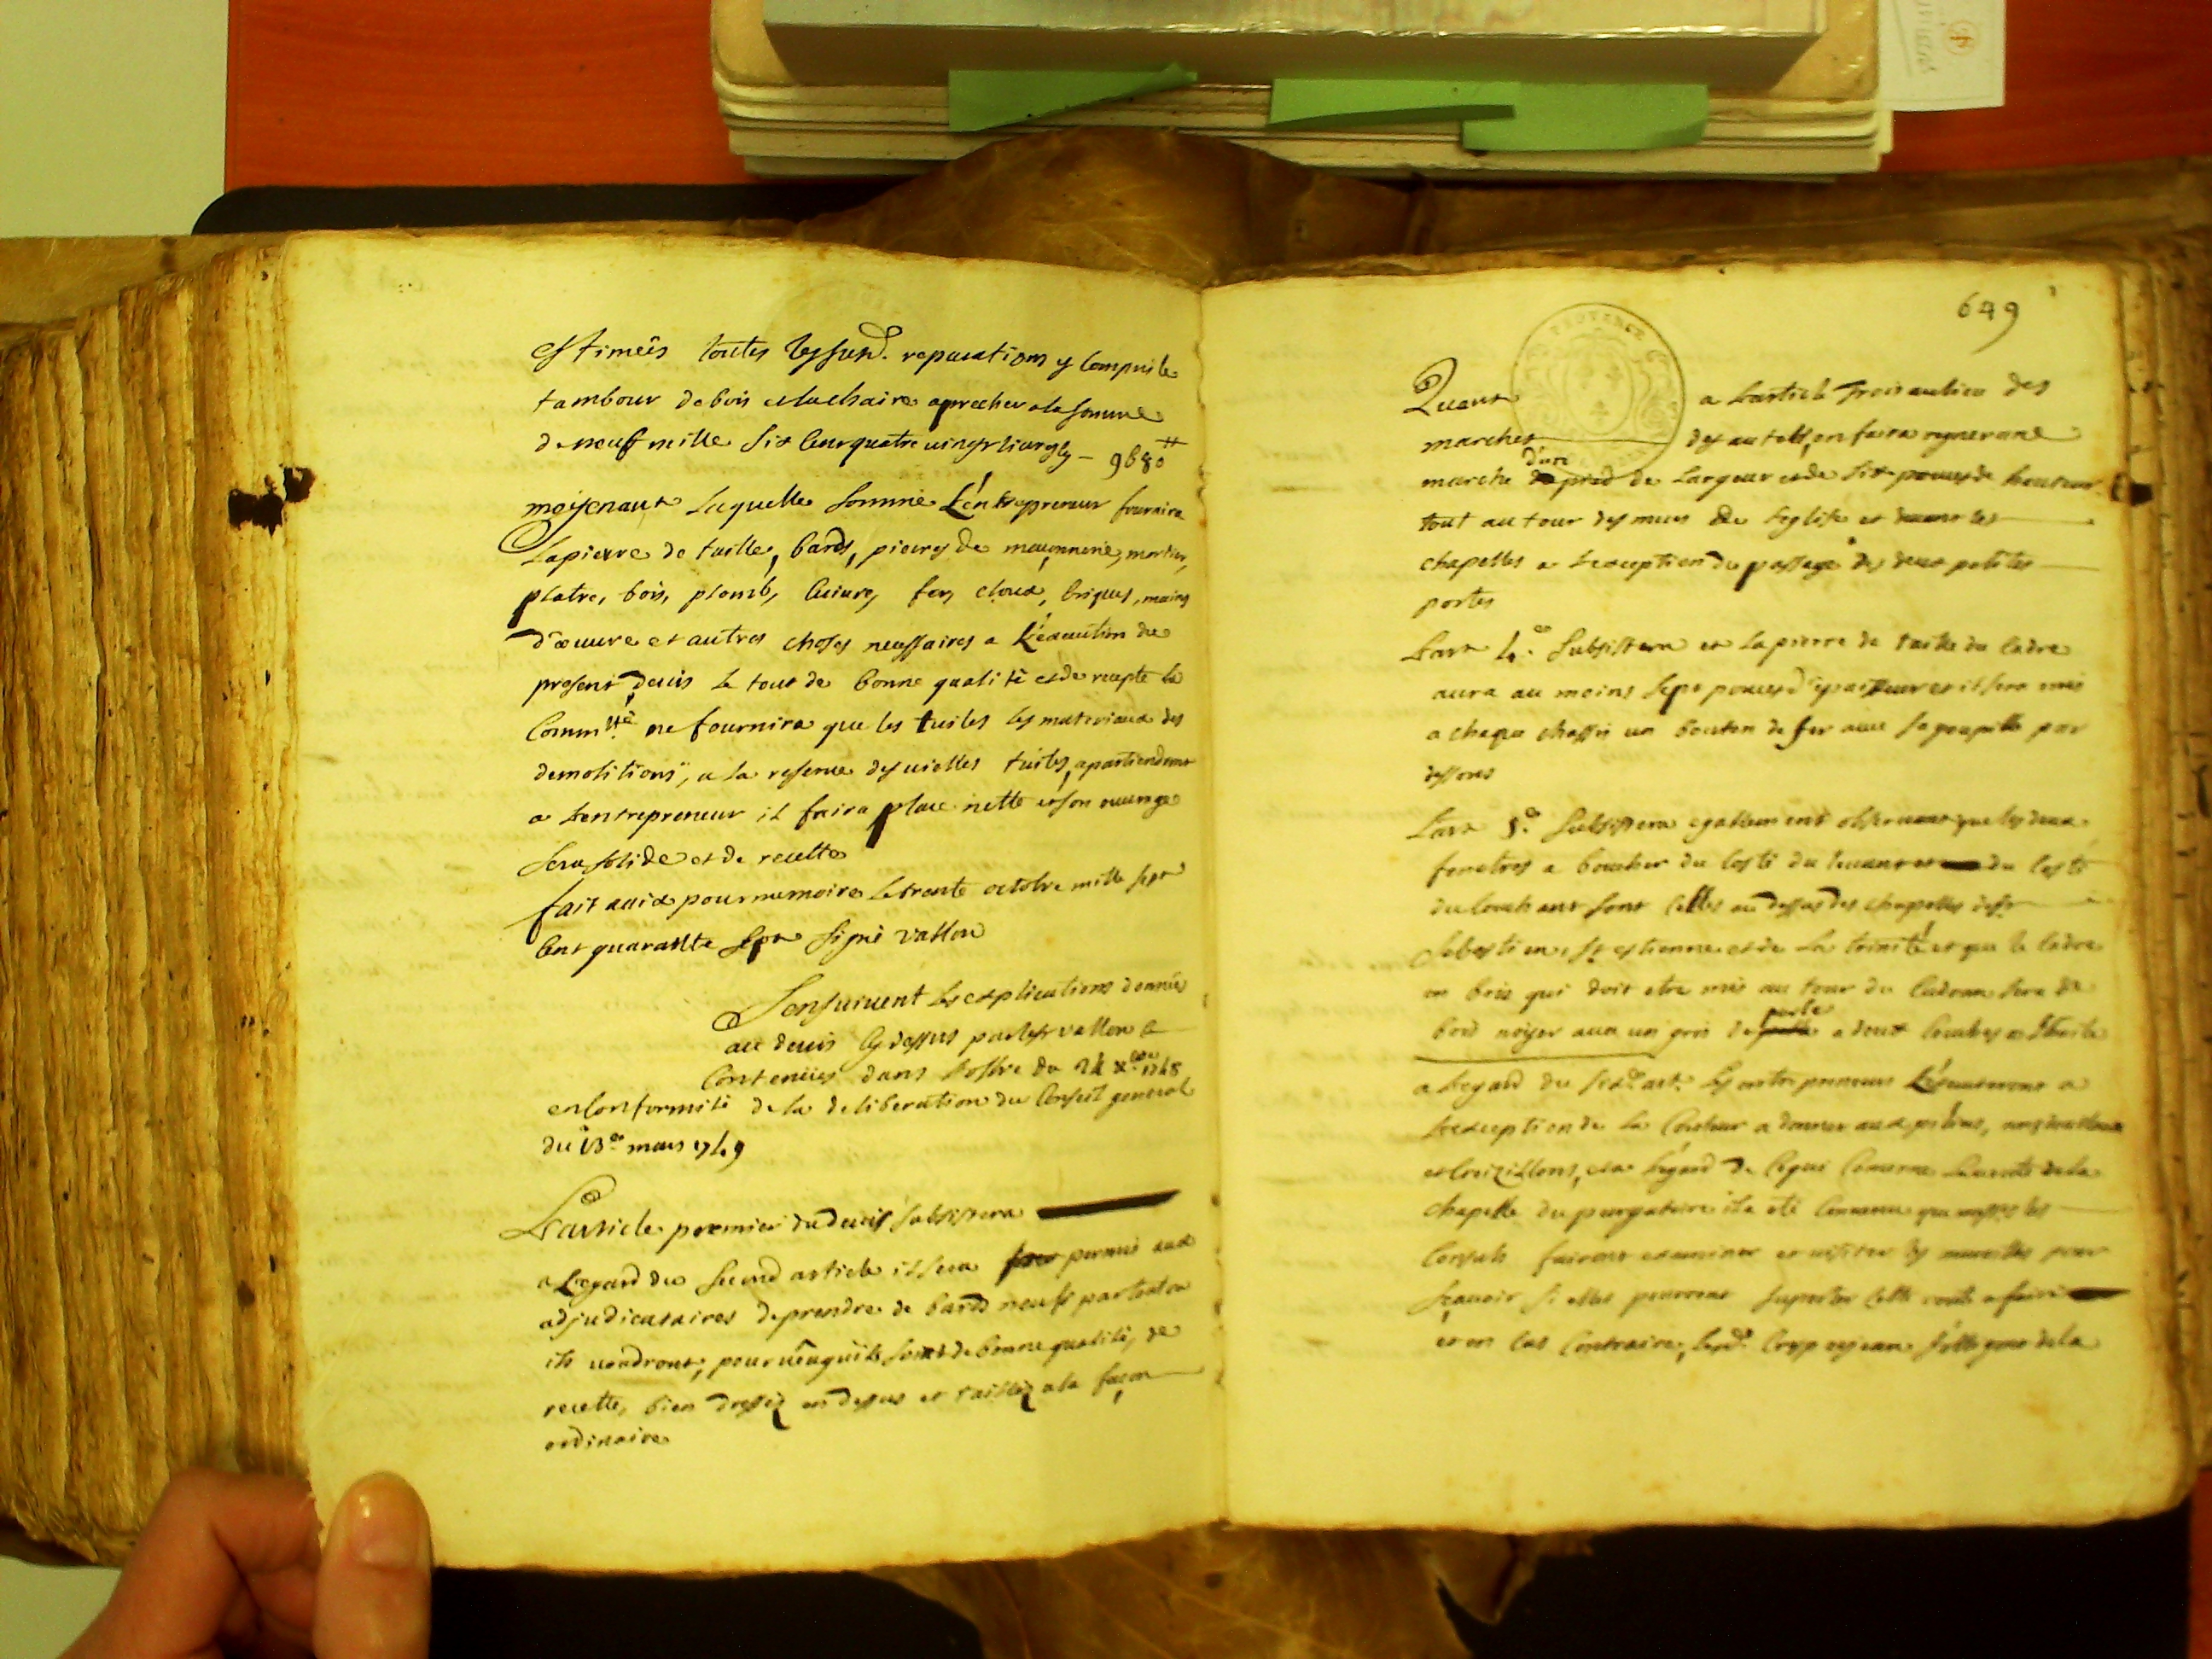 estimeés toutes lessusd. reparations y Comprisle
tambour de bois et lachaire aprecher ala somme
de neuf mille six Cens quatre vingt livres cy — 9680 ⁺⁺
moyenant Laquelle somme L'entrepreneur fournira
Lapierre de taille, bards, pierres de maçonnerie, mortier,
platre, bois, plomb, Cuivre, fer, cloux, briques, mains
d'œuvre et autres choses necessaires a L'execution du
present devis Le tout de bonne qualité et de recepte la
Comm.té ne fournira que les tuiles les materiaux des
demolitions, a la reserve des vielles tuiles, apartiendront
a Lentrepreneur il faira place nette et son ouvrage
sera solide et de recette
fait a aix pour memoire Le trente octobre mille sept
Cent quarante sept signé vallon
Sensuivent Les explications données
au devis Cy dessus par le sr vallon &
Contenües dans Loffre du 24 xbre 1748
en Conformité de la deliberation du Conseil general
du 13e mars 1749
Larticle premier du devis subsistera
a Legard du second article il sera permis aux
adjudicataires de prendre de bards neufs partout ou
ils voudront, pourveu quils soint de bonne qualité, de
recette, bien dressez en dessus et taillez a la façon
ordinaire
649
PROVENCE
Quant a Larticle trois au lieu des
marches des autels, on faira regner une
marche d'un pied de Largeur et de six pouces de hauteur
tout au tour des murs de Leglise et devant les
chapelles a Lexception du passage des deux petites
portes
Lart 4.e subsistera et La pierre de taille du Cadre
aura au moins sept pouces d'epaisseur et il sera mis
a chaque chassis un bouton de fer avec sa goupille par
dessous
Lart 5.e subsistera egallement observant que les deux
fenetres a boucher du Costé du levant et du Costé
du Couchant sont Celles au dessus des chapelles de st
Sebastien, st estienne et de La trinité et que le Cadre
en bois qui doit etre mis au tour du sera de
bois noyer avec un gris de perle a deux Couches a Lhuile
a Legard du sixe art. Les entrepreneurs L'executeront a
Lexception de La Couleur a donner aux
et Croizillons, et a Legard de Cequi Concerne La voute de la
chapelle du purgatoire il a eté Convenu que mess.rs les
Consuls fairont examiner et visiter les murailles pour
sçavoir si elles peuvent suporter Cette voute a faire
et en Cas Contraire, Lesd. de la